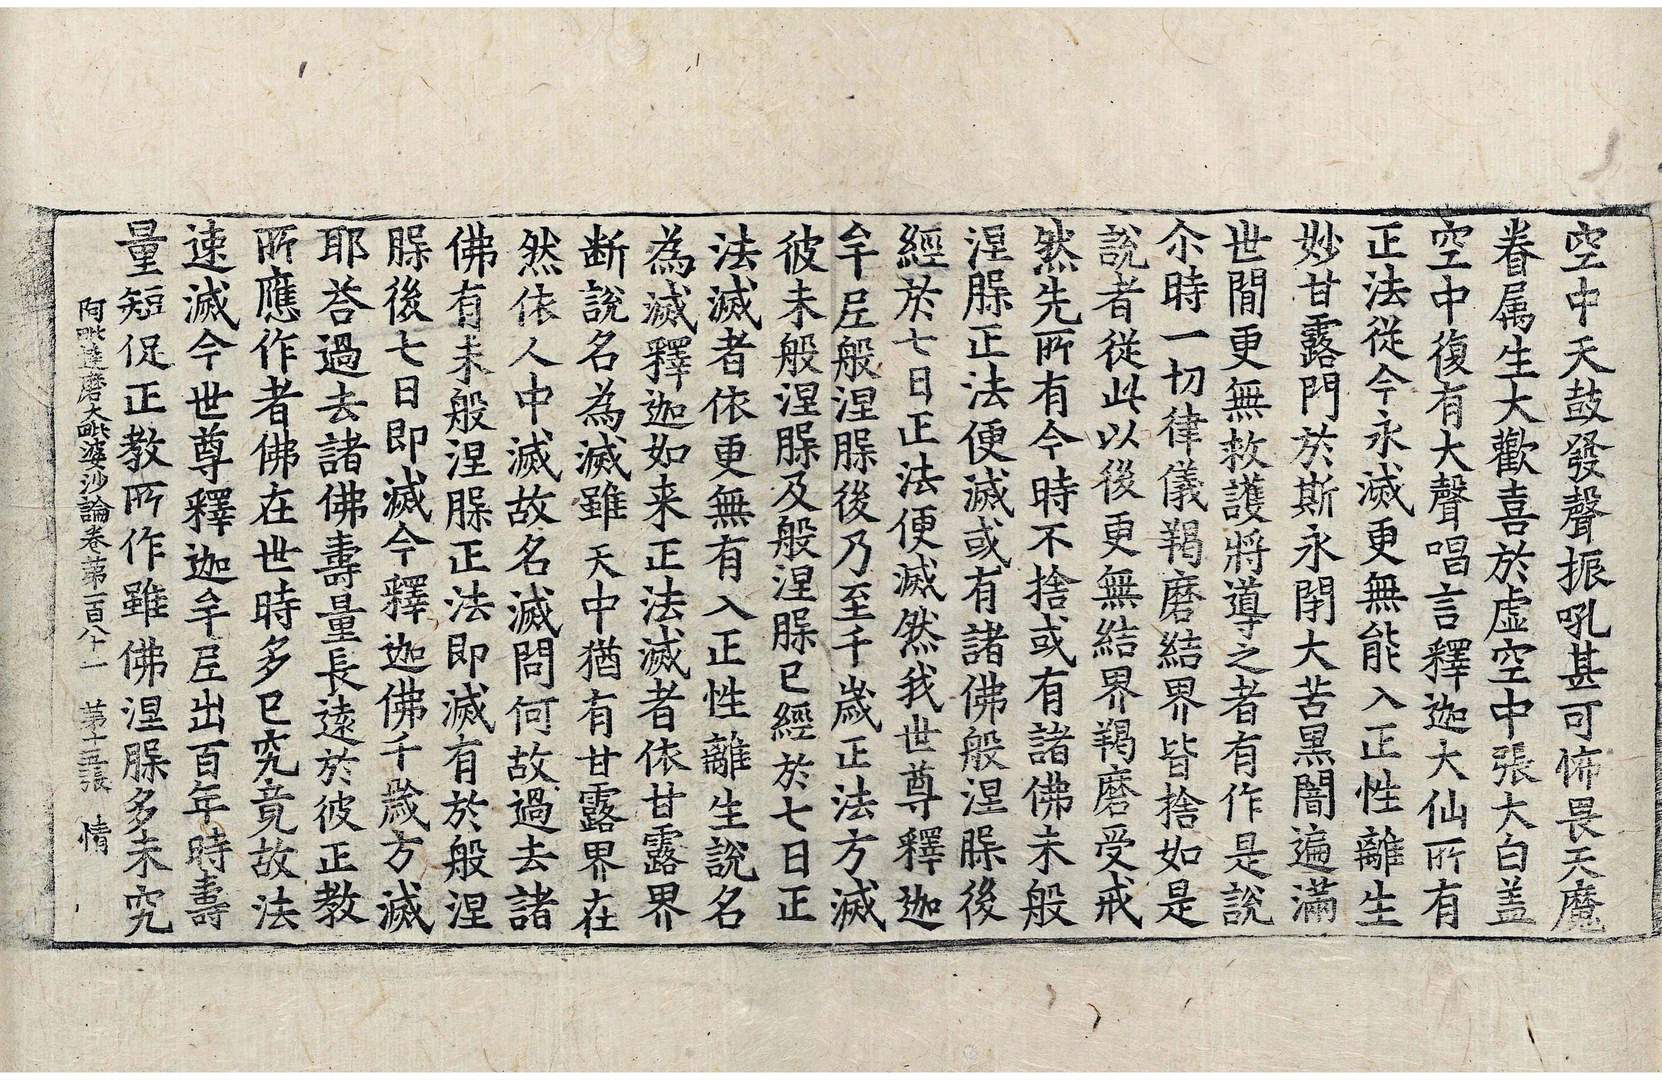 空中天鼓發聲振吼甚可怖畏天魔
眷属生大歡喜於虚空中張大白盖
空中復有大聲唱言釋迦大仙所有
正法從今永滅更無能入正性離生
妙甘露門於斯永閇大苦黒闇遍滿
世間更無救護將導之者有作是説
尒時一切律儀羯磨結界皆捨如是
説者從此以後更無結界羯磨受戒
然先所有今時不捨或有諸佛未般
涅槃正法便滅或有諸佛般涅槃後
經於七日正法便滅然我世尊釋迦
牟尼般涅槃後乃至千歲正法方滅
彼未般涅槃及般涅槃已經於七日正
法滅者依更無有入正性離生説名
為滅釋迦如来正法滅者依甘露界
断説名為滅雖天中猶有甘露界在
然依人中滅故名滅問何故過去諸
佛有未般涅槃正法即滅有於般涅
槃後七日即滅今釋迦佛千歲方滅
耶荅過去諸佛壽量長遠於彼正教
所應作者佛在世時多已究竟故法
速滅今世尊釋迦牟尼出百年時壽
量短促正教所作雖佛涅槃多未究
阿毗達磨大毗婆沙論卷第一百八十一 第十五張 情